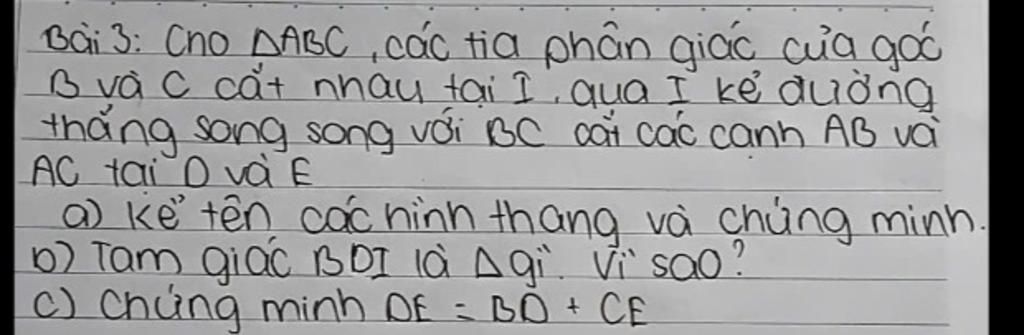 Bài 3: Cho ΔABC, các tia phân giác của góc
B và C cắt nhau tại I. qua I kẻ đường
thẳng song song với BC cắt các cạnh AB và
AC tại D và E
a) Kể tên các hình thang và chứng minh.
b) Tam giác BDI là Δ gì. Vì sao?
c) Chứng minh DE = BD + CE